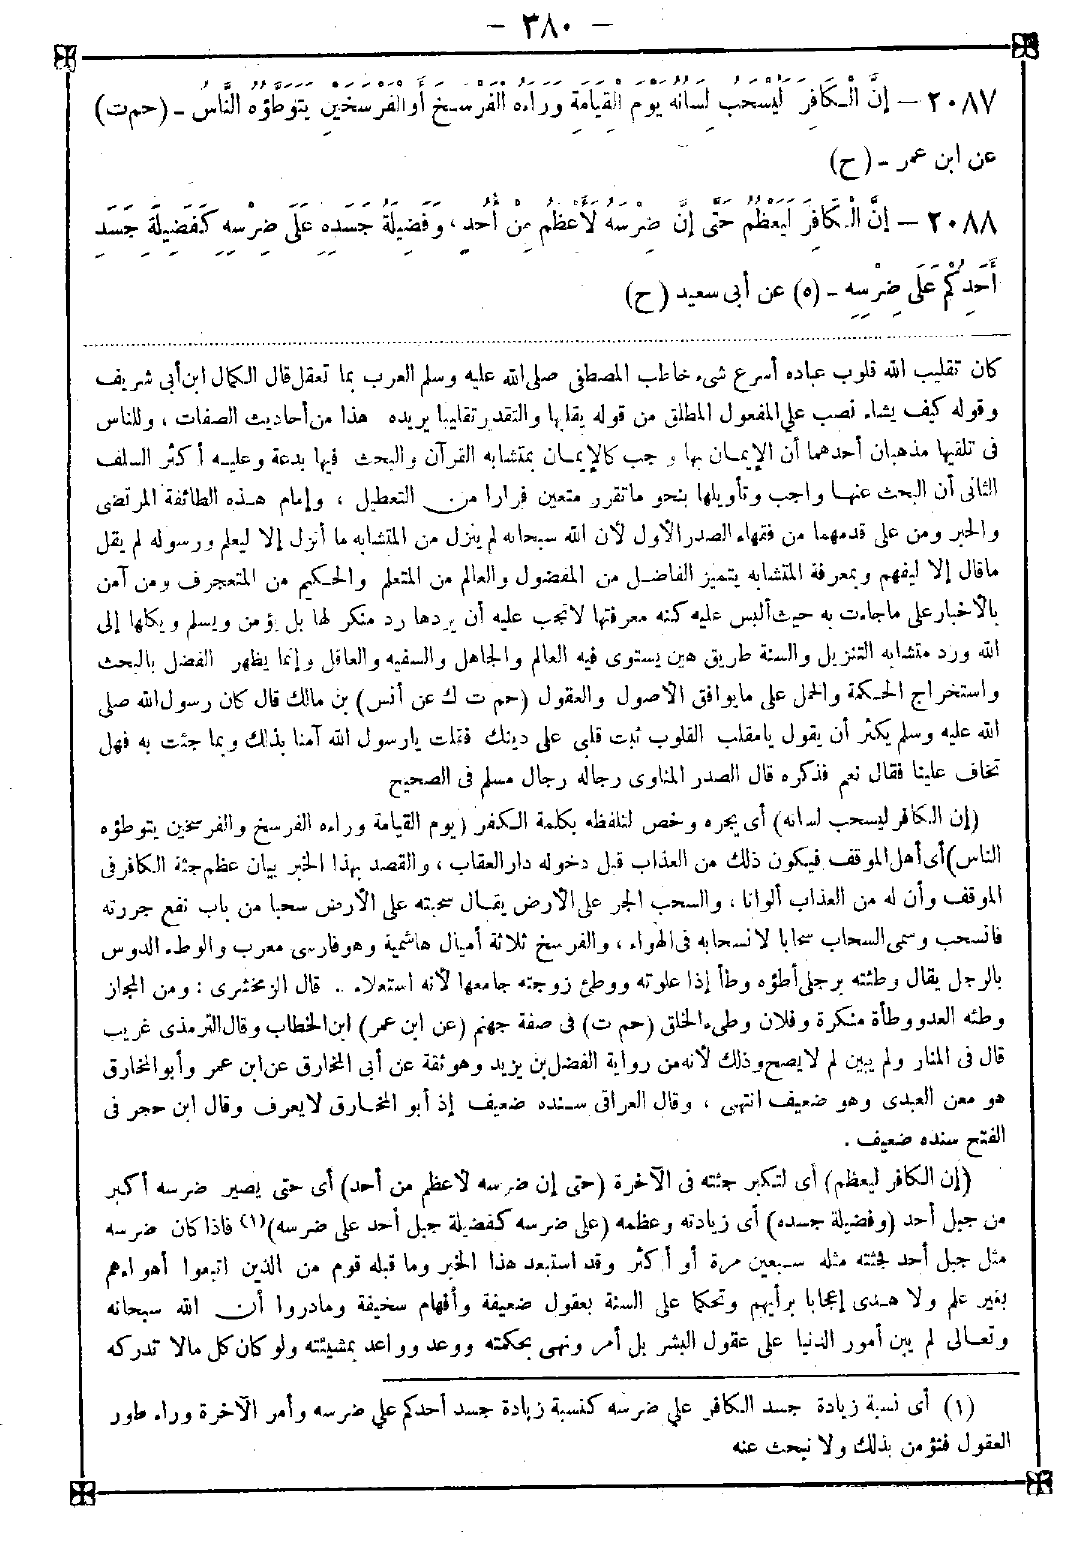 – ٣٨٠ –
٢٠٨٧ – إِنَّ الْكَافِرَ لَيَسْحَبُ لِسَانَهُ يَوْمَ الْقِيَامَةِ وَرَاءَهُ الْفَرْسَخَ أَوِ الْفَرْسَخَيْنِ يَتَوَطَّؤُهُ النَّاسُ – (حم ت)
عن ابن عمر – (ح)
٢٠٨٨ – إِنَّ الْكَافِرَ لَيَعْظُمُ حَتَّى إِنَّ ضِرْسَهُ لَأَعْظَمُ مِنْ أُحُدٍ، وَفَضِيلَةُ جَسَدِهِ عَلَى ضِرْسِهِ كَفَضِيلَةِ جَسَدِ
أَحَدِكُمْ عَلَى ضِرْسِهِ – (ه) عن أبى سعيد (ح)
كان تقليب الله قلوب عباده أسرع شىء خاطب المصطفى صلى الله عليه وسلم العرب بما تعقل قال الكمال ابن أبى شريف
وقوله كيف يشاء نصب على المفعول المطلق من قوله يقلبها والتقدر تقليبا يريده هذا من أحاديث الصفات ، وللناس
فى تلقيها مذهبان أحدهما أن الإيمان بها وجب كالإيمان بمتشابه القرآن والبحث فيها بدعة وعليه أكثر السلف
الثانى أن البحث عنها واجب وتأويلها بنحو ماتقرر متعين فرارا من التعطيل ، وإمام هذه الطائفة المرتضى
والحبر ومن على قدمهما من فقهاء الصدر الأول لأن الله سبحانه لم ينزل من المتشابه ما أنزل إلا ليعلم ورسوله لم يقل
ماقال إلا ليفهم وبمعرفة المتشابه يتميز الفاضل من المفضول والعالم من المتعلم والحكيم من المتعجرف ومن آمن
بالأخبار على ماجاءت به حيث ألبس عليه كنه معرفتها لانجب عليه أن يردها رد منكر لها بل يؤمن ويسلم ويكلها إلى
الله ورد متشابه التنزيل والسنة طريق هين يستوى فيه العالم والجاهل والسفيه والعاقل وإنما يظهر الفضل بالبحث
واستخراج الحكمة والحمل على مايوافق الأصول والعقول (حم ت ك عن أنس) بن مالك قال كان رسول الله صلى
الله عليه وسلم يكثر أن يقول يامقلب القلوب ثبت قلبى على دينك فقلت يارسول الله آمنا بذلك وبما جئت به فهل
تخاف علينا فقال نعم فذكره قال الصدر المناوى رجاله رجال مسلم فى الصحيح
(إن الكافر ليسحب لسانه) أى يجره وخص لتلفظه بكلمة الكفر (يوم القيامة وراءه الفرسخ والفرسخين يتوطؤه
الناس) أى أهل الموقف فيكون ذلك من العذاب قبل دخوله دار العقاب ، والقصد بهذا الخبر بيان عظم جثة الكافر فى
الموقف وأن له من العذاب ألوانا ، والسحب الجر على الأرض يقال سحبته على الأرض سحبا من باب نفع جررته
فانسحب وسمى السحاب سحابا لانسحابه فى الهواء ، والفرسخ ثلاثة أميال هاشمية وهو فارسى معرب والوطء الدوس
بالرجل يقال وطئته برجلى أطؤه وطأ إذا علوته ووطئ زوجته جامعها لأنه استعلاء .. قال الزمخشرى : ومن المجاز
وطئه العدو وطأة منكرة وفلان وطىء الخلق (حم ت) فى صفة جهنم (عن ابن عمر) ابن الخطاب وقال الترمذى غريب
قال فى المنار ولم يبين لم لايصح وذلك لأنه من رواية الفضل بن يزيد وهو ثقة عن أبى المخارق عن ابن عمر وأبو المخارق
هو معن العبدى وهو ضعيف انتهى ، وقال العراقى سنده ضعيف إذ أبو المخارق لايعرف وقال ابن حجر فى
الفتح سنده ضعيف .
(إن الكافر ليعظم) أى لتكبر جثته فى الآخرة (حتى إن ضرسه لأعظم من أحد) أى حتى يصير ضرسه أكبر
من جبل أحد (وفضيلة جسده) أى زيادته وعظمه (على ضرسه كفضيلة جبل أحد على ضرسه)(١) فاذا كان ضرسه
مثل جبل أحد فجثته مثله سبعين مرة أو أكثر وقد استبعد هذا الخبر وما قبله قوم من الذين اتبعوا أهواءهم
بغير علم ولا هدى إعجابا برأيهم وتحكما على السنة بعقول ضعيفة وأفهام سخيفة ومادروا أن الله سبحانه
وتعالى لم يبن أمور الدنيا على عقول البشر بل أمر ونهى بحكمته ووعد وواعد بمشيئته ولو كان كل مالا تدركه
(١) أى نسبة زيادة جسد الكافر على ضرسه كنسبة زيادة جسد أحدكم على ضرسه وأمر الآخرة وراء طور
العقول فنؤمن بذلك ولا نبحث عنه